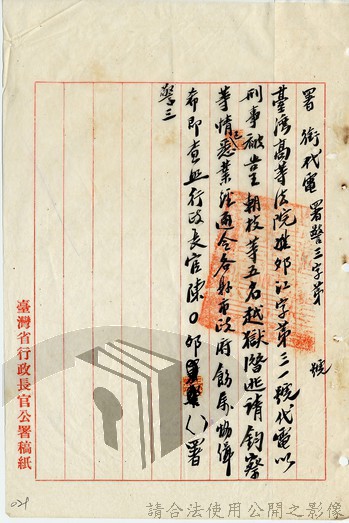 署銜代電 署警三字第　　號
臺灣高等法院
字第三一號代電以
刑事被告王朝枝等五名越獄潛逃請鈞察
等情已悉業經通令各縣市政府飭屬協緝
希即查照行政長官陳○
署
警三
臺灣省行政長官公署稿紙
請合法使用公開之影像